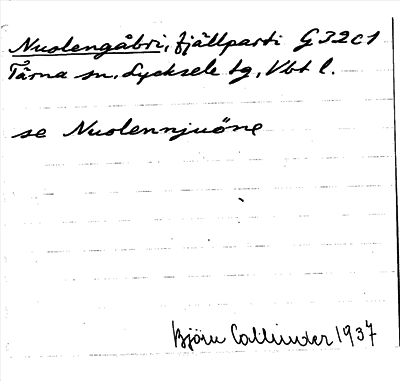 Nuolengåbri, fjällparti G32c1
Tärna sn, Lycksele tg, Vbt l.
se Nuolennjuöne
Björn Collinder 1937